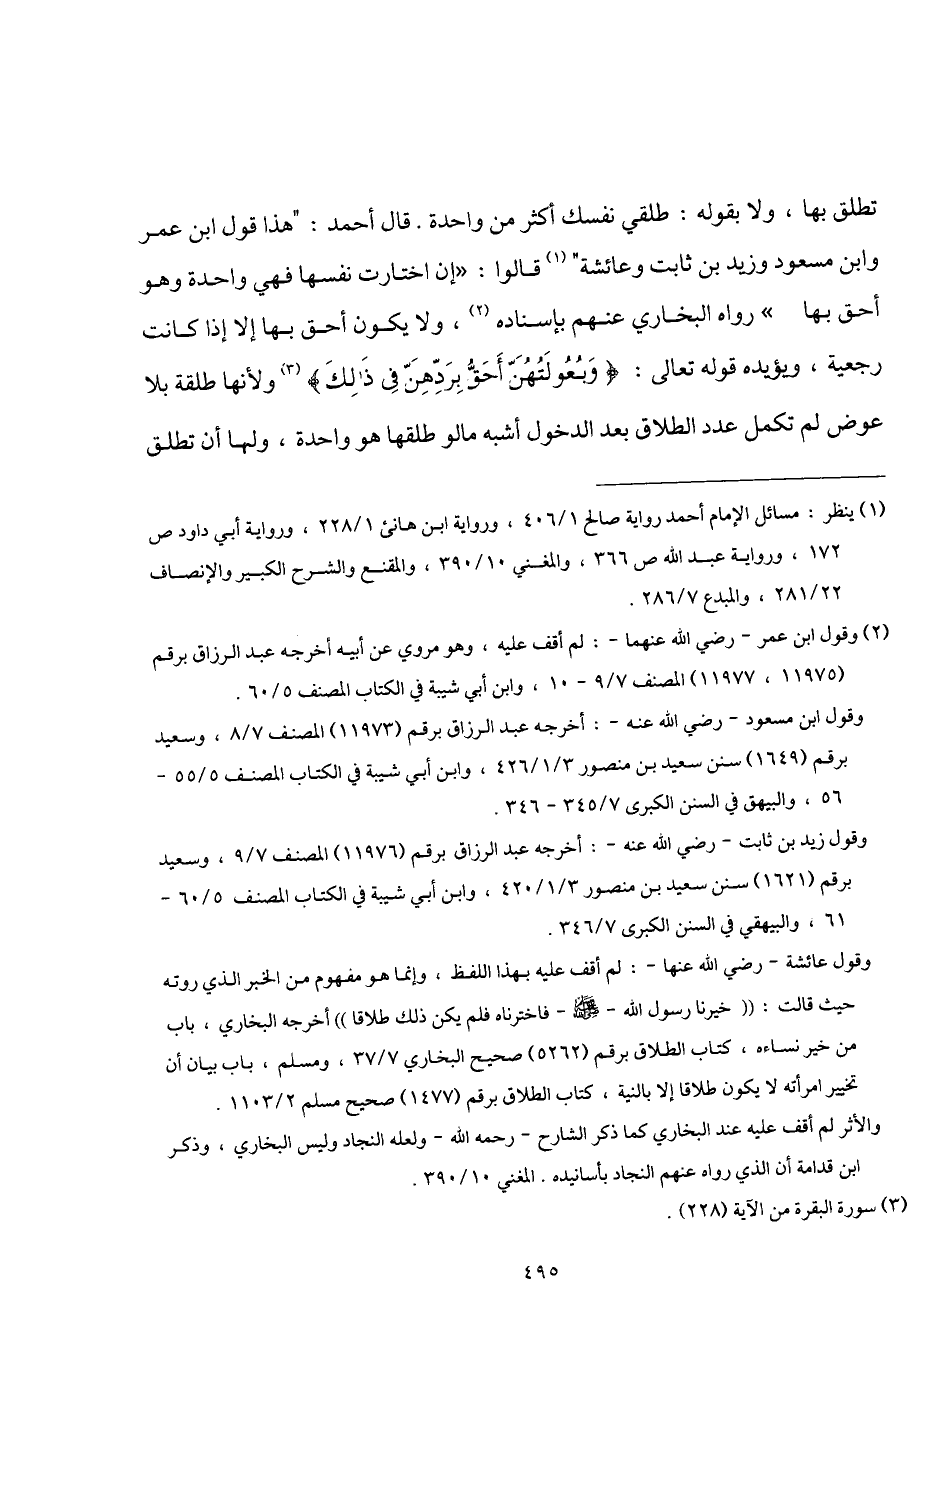 تطلق بها ، ولا بقوله : طلقي نفسك أكثر من واحدة . قال أحمد : "هذا قول ابن عمر
وابن مسعود وزيد بن ثابت وعائشة" (١) قالوا : «إن اختارت نفسها فهي واحدة وهو
أحق بها » رواه البخاري عنهم بإسناده (٢) ، ولا يكون أحق بها إلا إذا كانت
رجعية ، ويؤيده قوله تعالى : ﴿ وَبُعُولَتُهُنَّ أَحَقُّ بِرَدِّهِنَّ فِي ذَٰلِكَ ﴾ (٣) ولأنها طلقة بلا
عوض لم تكمل عدد الطلاق بعد الدخول أشبه مالو طلقها هو واحدة ، ولها أن تطلق
(١) ينظر : مسائل الإمام أحمد رواية صالح ٤٠٦/١ ، ورواية ابن هانئ ٢٢٨/١ ، ورواية أبي داود ص
١٧٢ ، ورواية عبد الله ص ٣٦٦ ، والمغني ٣٩٠/١٠ ، والمقنع والشرح الكبير والإنصاف
٢٨١/٢٢ ، والمبدع ٢٨٦/٧ .
(٢) وقول ابن عمر - رضي الله عنهما - : لم أقف عليه ، وهو مروي عن أبيه أخرجه عبد الرزاق برقم
(١١٩٧٥ ، ١١٩٧٧) المصنف ٩/٧ - ١٠ ، وابن أبي شيبة في الكتاب المصنف ٦٠/٥ .
وقول ابن مسعود - رضي الله عنه - : أخرجه عبد الرزاق برقم (١١٩٧٣) المصنف ٨/٧ ، وسعيد
برقم (١٦٤٩) سنن سعيد بن منصور ٤٢٦/١/٣ ، وابن أبي شيبة في الكتاب المصنف ٥٥/٥ -
٥٦ ، والبيهق في السنن الكبرى ٣٤٥/٧ - ٣٤٦ .
وقول زيد بن ثابت - رضي الله عنه - : أخرجه عبد الرزاق برقم (١١٩٧٦) المصنف ٩/٧ ، وسعيد
برقم (١٦٢١) سنن سعيد بن منصور ٤٢٠/١/٣ ، وابن أبي شيبة في الكتاب المصنف ٦٠/٥ -
٦١ ، والبيهقي في السنن الكبرى ٣٤٦/٧ .
وقول عائشة - رضي الله عنها - : لم أقف عليه بهذا اللفظ ، وإنما هو مفهوم من الخبر الذي روته
حيث قالت : (( خيرنا رسول الله - ﷺ - فاخترناه فلم يكن ذلك طلاقا )) أخرجه البخاري ، باب
من خير نساءه ، كتاب الطلاق برقم (٥٢٦٢) صحيح البخاري ٣٧/٧ ، ومسلم ، باب بيان أن
تخيير امرأته لا يكون طلاقا إلا بالنية ، كتاب الطلاق برقم (١٤٧٧) صحيح مسلم ١١٠٣/٢ .
والأثر لم أقف عليه عند البخاري كما ذكر الشارح - رحمه الله - ولعله النجاد وليس البخاري ، وذكر
ابن قدامة أن الذي رواه عنهم النجاد بأسانيده . المغني ٣٩٠/١٠ .
(٣) سورة البقرة من الآية (٢٢٨) .
٤٩٥